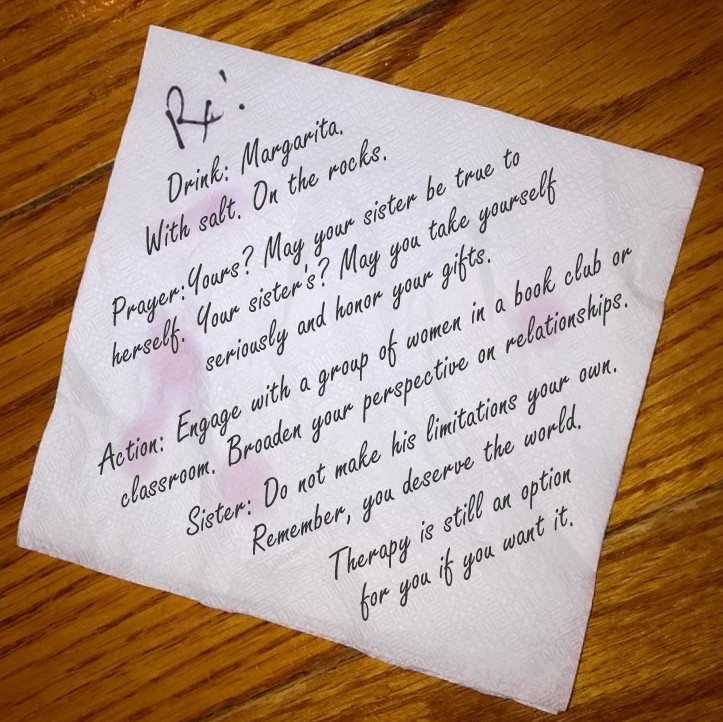 Rx:
Drink: Margarita.
With salt. On the rocks.
Prayer:Yours? May your sister be true to
herself. Your sister's? May you take yourself
seriously and honor your gifts.
Action: Engage with a group of women in a book club or
classroom. Broaden your perspective on relationships.
Sister: Do not make his limitations your own.
Remember, you deserve the world.
Therapy is still an option
for you if you want it.